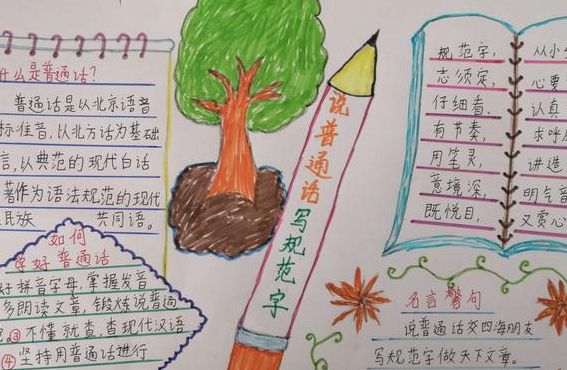 什么是普通话?
普通话是以北京语音
标准音,以北方话为基础
言,以典范的现代白话
著作为语法规范的现代
民族 共同语。
如何
学好普通话
好拼音字母,掌握发音
多朗读文章,锻炼说普通
③不懂就查,查现代汉语
④坚持用普通话进行
说普通话写规范字
规范字,
志须定,
仔细看、
有节奏,
用笔灵,
意境深,
既悦目,
从小
心要
认真
求呼
讲造
明气
又赏心
名言警句
说普通话交四海朋友
写规范字做天下文章。